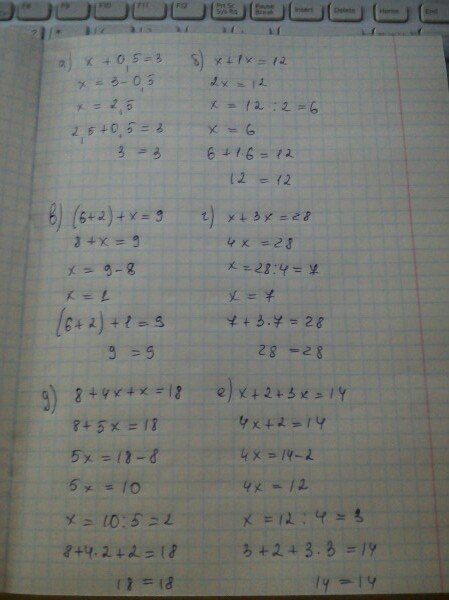 F8 F9 F10 F11 F12 Prt Sc Sys Rq Pause Break Insert Delete Home End
а) x + 0,5 = 3
x = 3 - 0,5
x = 2,5
2,5 + 0,5 = 3
3 = 3
б) x + 1x = 12
2x = 12
x = 12 : 2 = 6
x = 6
6 + 1·6 = 12
12 = 12
в) (6+2) + x = 9
8 + x = 9
x = 9 - 8
x = 1
(6+2) + 1 = 9
9 = 9
г) x + 3x = 28
4x = 28
x = 28 : 4 = 7
x = 7
7 + 3·7 = 28
28 = 28
д) 8 + 4x + x = 18
8 + 5x = 18
5x = 18 - 8
5x = 10
x = 10 : 5 = 2
8 + 4·2 + 2 = 18
18 = 18
е) x + 2 + 3x = 14
4x + 2 = 14
4x = 14 - 2
4x = 12
x = 12 : 4 = 3
3 + 2 + 3·3 = 14
14 = 14